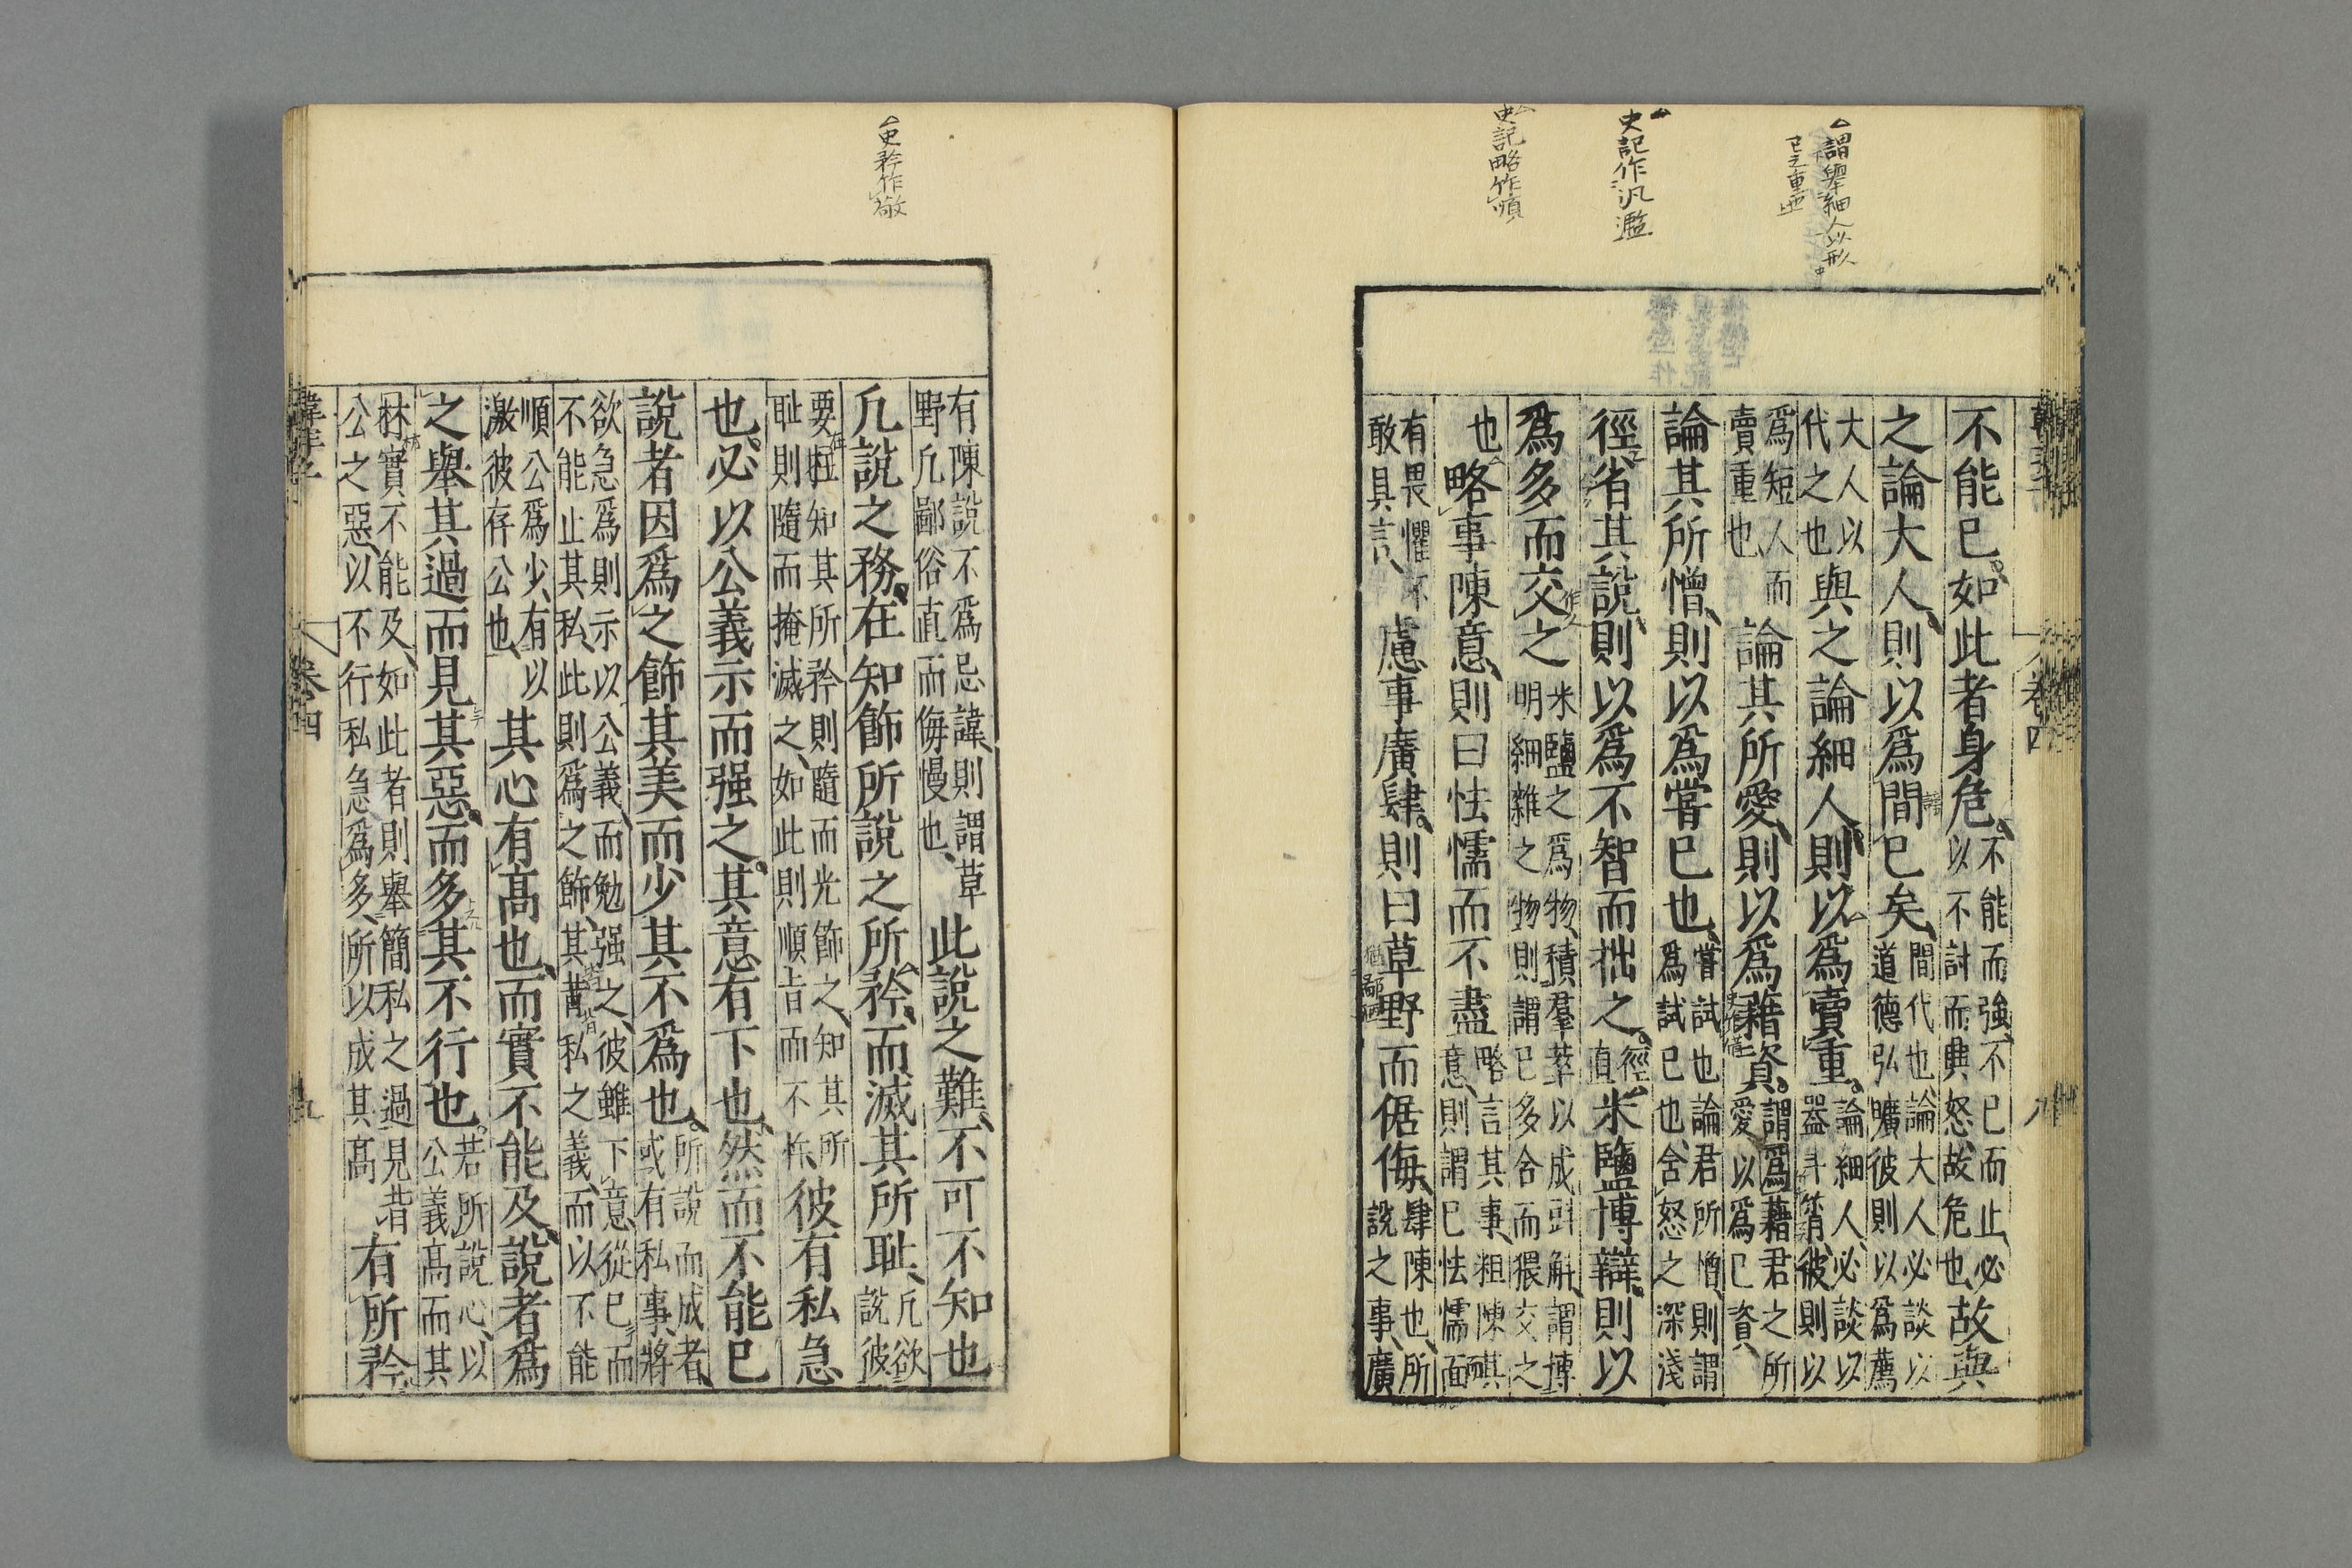 △謂舉細人以形
已之重也
史記作汎濫
史記略作順
不能已如此者身危不能而強不已而止必
以不討而興怒故危也故與
之論大人則以爲間已矣間代也論大人必談以
道德弘曠彼則以爲薦
大人以
代之也與之論細人則以爲賣重論細人必談以
器斗筲彼則以
爲短人而
賣重也論其所愛則以爲藉資謂爲藉君之所
愛以爲己資
論其所憎則以爲嘗已也嘗試也論君所憎則謂
爲試已也含怒之深淺
徑省其說則以爲不智而拙之徑
直米鹽博辯則以
爲多而交之米鹽之爲物積羣萃以成斛謂博
明細雜之物則謂已多含而猥交之
也略事陳意則曰怯懦而不盡略言其事粗陳其
意則謂已怯懦面
有畏懼不
敢具言慮事廣肆則曰草野而倨侮肆陳也所
說之事廣
卷四
八
△史矜作敬
有陳說不爲忌諱則謂草
野凢鄙俗直而侮慢也此說之難不可不知也
凢說之務在知飾所說之所矜而滅其所恥凢欲
說彼
要在知其所矜則隨而光飾之知其所
恥則隨而掩滅之如此則順旨而不忤彼有私急
也必以公義示而强之其意有下也然而不能已
說者因爲之飾其美而少其不爲也所說而成者
或有私事將
欲急爲則示以公義而勉强之彼雖下意從已而
不能止其私此則爲之飾其背私之義而以不能
順公爲少有以
激彼存公也其心有高也而實不能及說者爲
之舉其過而見其惡而多其不行也若所說心以
公義高而其
材實不能及如此者則舉簡私之過見背
公之惡以不行私急爲多所以成其高有所矜
卷四
九